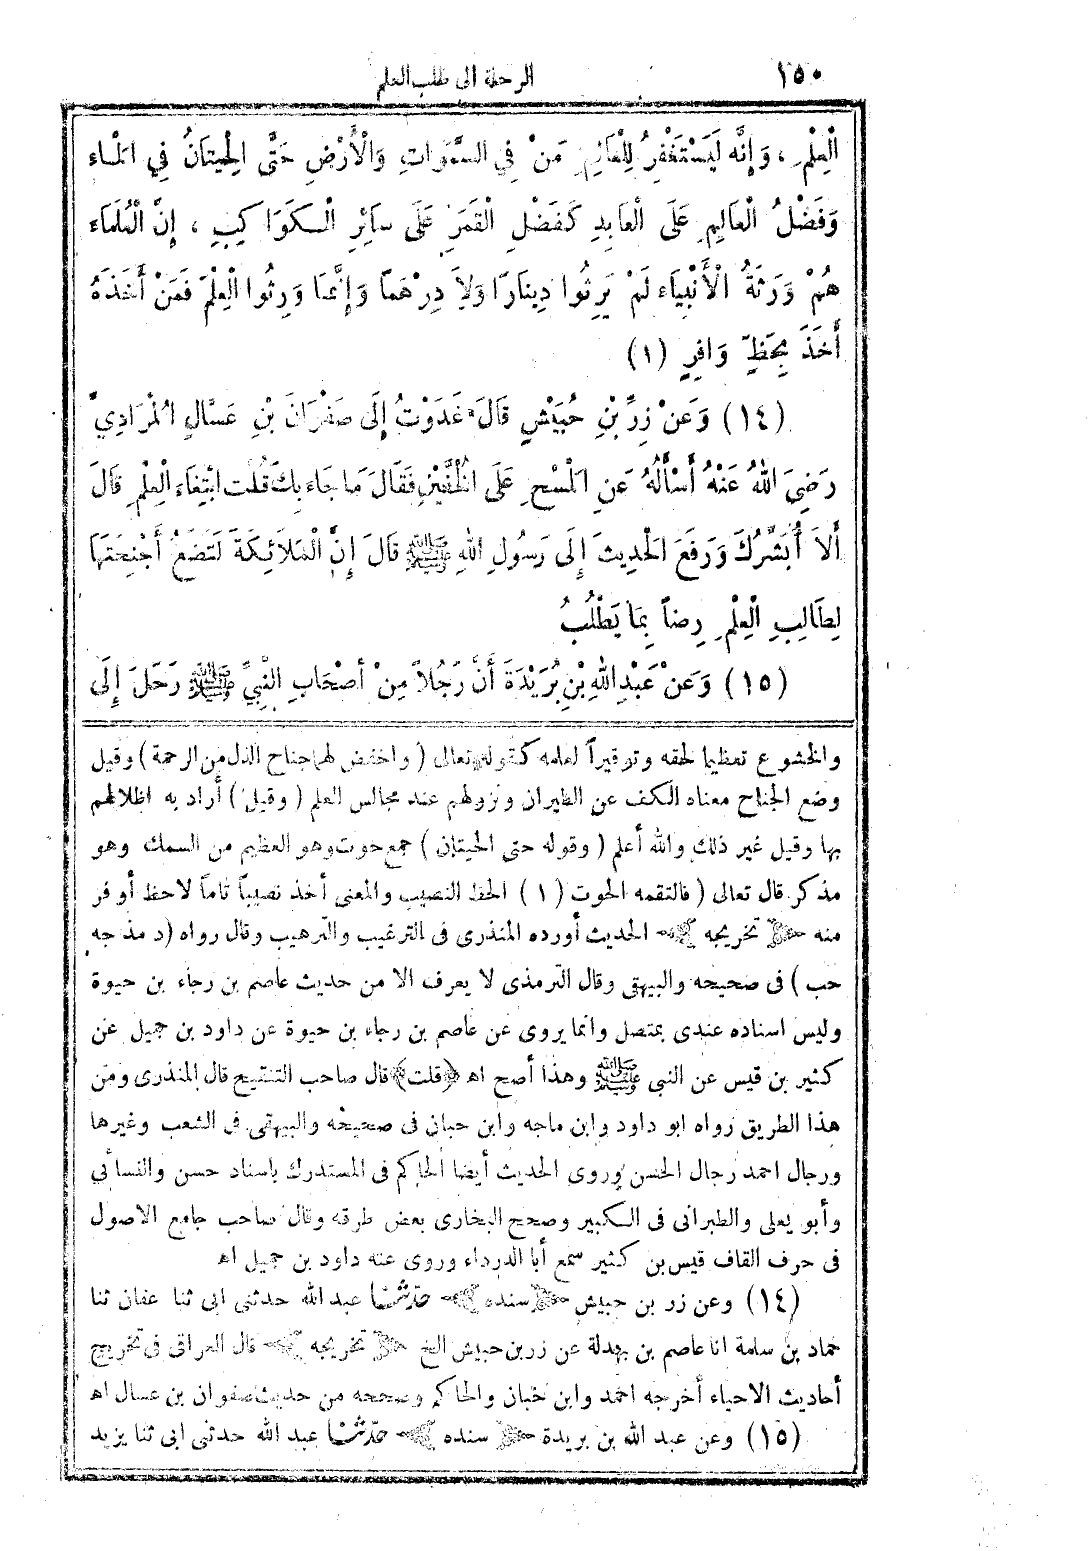 ١٥٠ الرحلة الى طلب العلم
الْعِلْمِ ، وَإِنَّه لَيَسْتَغْفِرُ لِلْعَالِمِ مَنْ فِي السَّمٰوَاتِ وَالْأَرْضِ حَتَّى الْحِيتَانُ فِي الْمَاءِ
وَفَضْلُ الْعَالِمِ عَلَى الْعَابِدِ كَفَضْلِ الْقَمَرِ عَلَى سَائِرِ الْكَوَاكِبِ ، إِنَّ الْعُلَمَاءَ
هُمْ وَرَثَةُ الْأَنْبِيَاءِ لَمْ يَرِثُوا دِينَارًا وَلاَ دِرْهَمًا وَإِنَّمَا وَرِثُوا الْعِلْمَ فَمَنْ أَخَذَهُ
أَخَذَ بِحَظٍّ وَافِرٍ (١)
(١٤) وَعَنْ زِرِّ بْنِ حُبَيْشٍ قَالَ غَدَوْتُ إِلَى صَفْوَانَ بْنِ عَسَّالٍ الْمُرَادِيِّ
رَضِيَ اللهُ عَنْهُ أَسْأَلُهُ عَنِ الْمَسْحِ عَلَى الْخُفَّيْنِ فَقَالَ مَا جَاءَ بِكَ قُلْتُ ابْتِغَاءَ الْعِلْمِ قَالَ
أَلاَ أُبَشِّرُكَ وَرَفَعَ الْحَدِيثَ إِلَى رَسُولِ اللهِ ﷺ قَالَ إِنَّ الْمَلاَئِكَةَ لَتَضَعُ أَجْنِحَتَهَا
لِطَالِبِ الْعِلْمِ رِضاً بِمَا يَطْلُبُ
(١٥) وَعَنْ عَبْدِ اللهِ بْنِ بُرَيْدَةَ أَنَّ رَجُلاً مِنْ أَصْحَابِ النَّبِيِّ ﷺ رَحَلَ إِلَى
والخشوع تعظيما لحقه وتوقيراً لعلمه كقوله تعالى ( واخفض لهما جناح الذل من الرحمة ) وقيل
وضع الجناح معناه الكف عن الطيران ونزولهم عند مجالس العلم ( وقيل ) أراد به اظلالهم
بها وقيل غير ذلك والله أعلم ( وقوله حتى الحيتان ) جمع حوت وهو العظيم من السمك وهو
مذكر قال تعالى ( فالتقمه الحوت ( ١ ) الحظ النصيب والمعنى أخذ نصيباً تاماً لاحظ أوفر
منه تخريجه الحديث أورده المنذرى فى الترغيب والترهيب وقال رواه (د مذ جه
حب ) فى صحيحه والبيهقى وقال الترمذى لا يعرف الا من حديث عاصم بن رجاء بن حيوة
وليس اسناده عندى بمتصل وانما يروى عن عاصم بن رجاء بن حيوة عن داود بن جميل عن
كثير بن قيس عن النبى ﷺ وهذا أصح اه ﴿قلت﴾ قال صاحب التنقيح قال المنذرى ومن
هذا الطريق رواه ابو داود وابن ماجه وابن حبان فى صحيحه والبيهقى فى الشعب وغيرها
ورجال احمد رجال الحسن وروى الحديث أيضا الحاكم فى المستدرك باسناد حسن والنسائى
وأبو يعلى والطبرانى فى الكبير وصحح البخارى بعض طرقه وقال صاحب جامع الاصول
فى حرف القاف قيس بن كثير سمع أبا الدرداء وروى عنه داود بن جميل اه
(١٤) وعن زر بن حبيش سنده حدّثنا عبد الله حدثنى ابى ثنا عفان ثنا
حماد بن سلمة انا عاصم بن بهدلة عن زر بن حبيش الخ تخريجه قال العراقى فى تخريج
أحاديث الاحياء أخرجه احمد وابن حبان والحاكم وصححه من حديث صفوان بن عسال اه
(١٥) وعن عبد الله بن بريدة سنده حدّثنا عبد الله حدثنى ابى ثنا يزيد